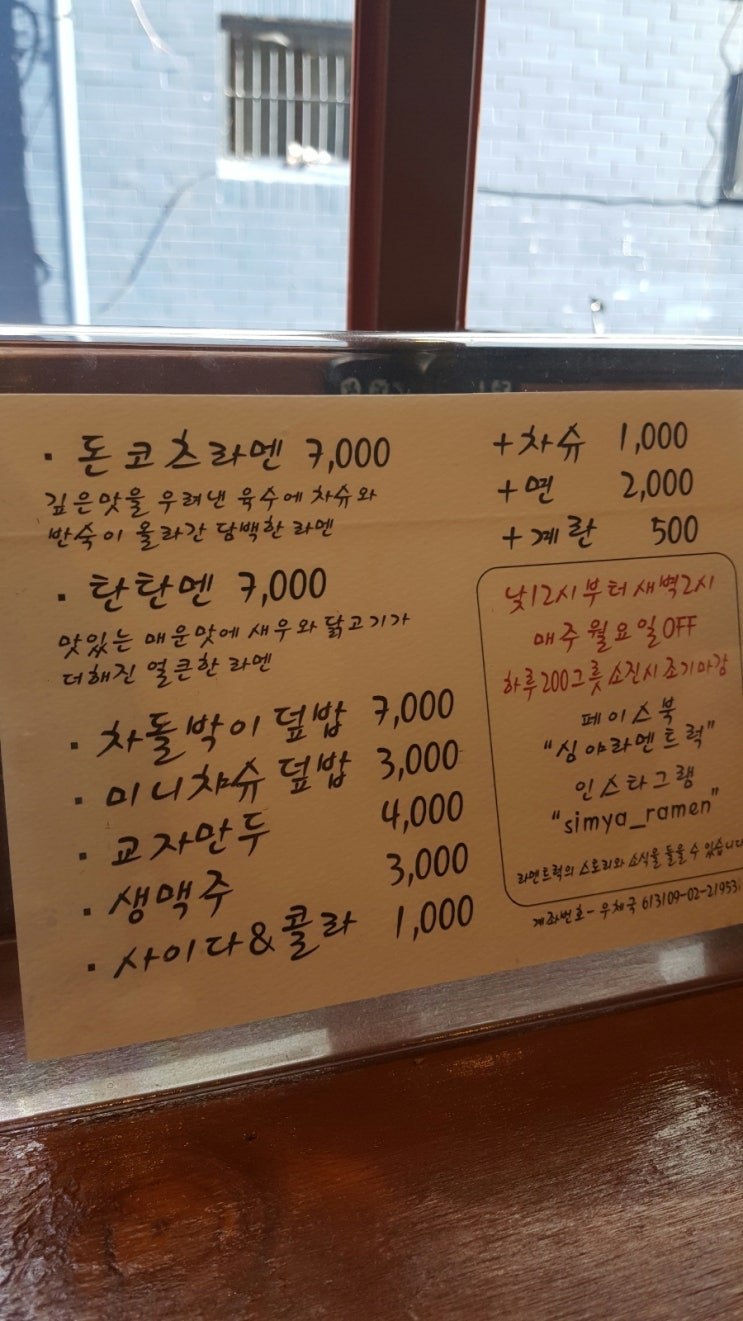 · 돈코츠라멘 7,000
깊은맛을 우려낸 육수에 차슈와
반숙이 올라간 담백한 라멘
· 탄탄멘 7,000
맛있는 매운맛에 새우와 닭고기가
더해진 얼큰한 라멘
· 차돌박이 덮밥 7,000
· 미니차슈 덮밥 3,000
· 교자만두 4,000
· 생맥주 3,000
· 사이다&콜라 1,000
+차슈 1,000
+면 2,000
+계란 500
낮12시부터 새벽2시
매주 월요일OFF
하루200그릇 소진시 조기마감
페이스북
"심야라멘트럭"
인스타그램
"simya_ramen"
라멘트럭의 스토리와 소식을 들을 수 있습니다
계좌번호- 우체국 613109-02-21953